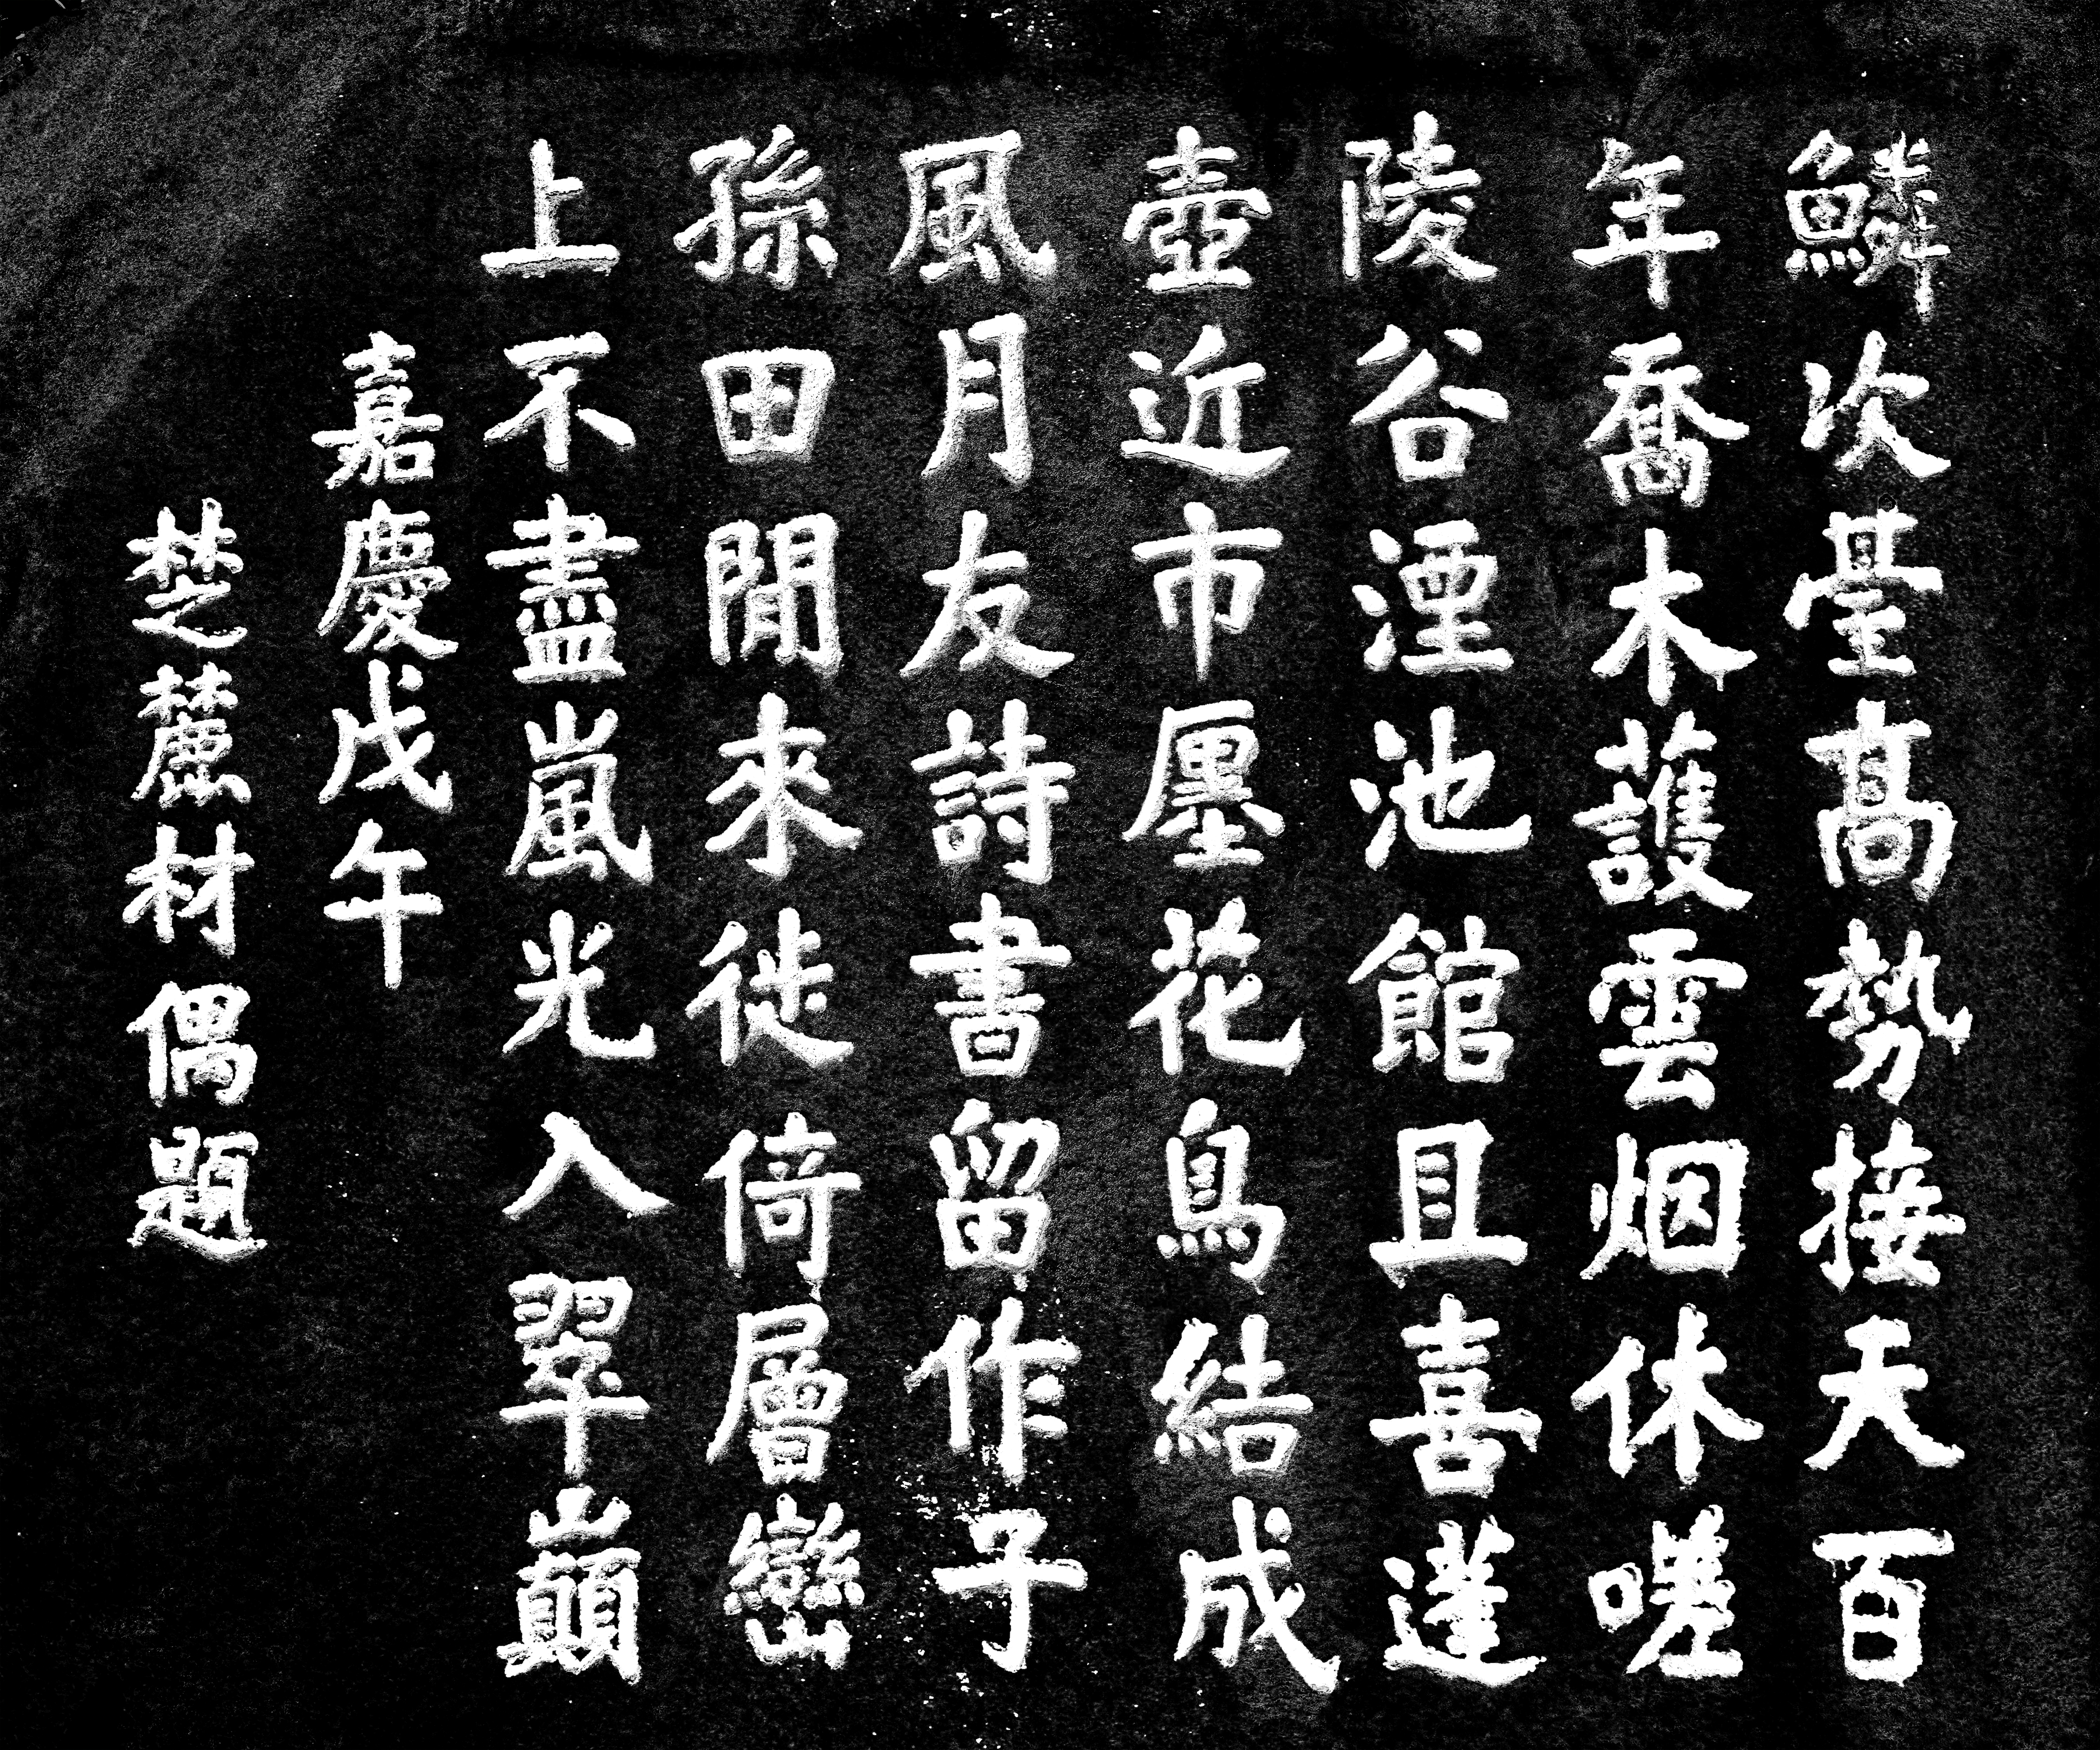 鱗次臺髙勢接天百
年喬木護雲烟休嗟
陵谷湮池館且喜蓬
壺近市廛花鳥結成
風月友詩書留作子
孫田閒來徙倚層巒
上不盡嵐光入翠巔
嘉慶戊午
椘麓材偶題